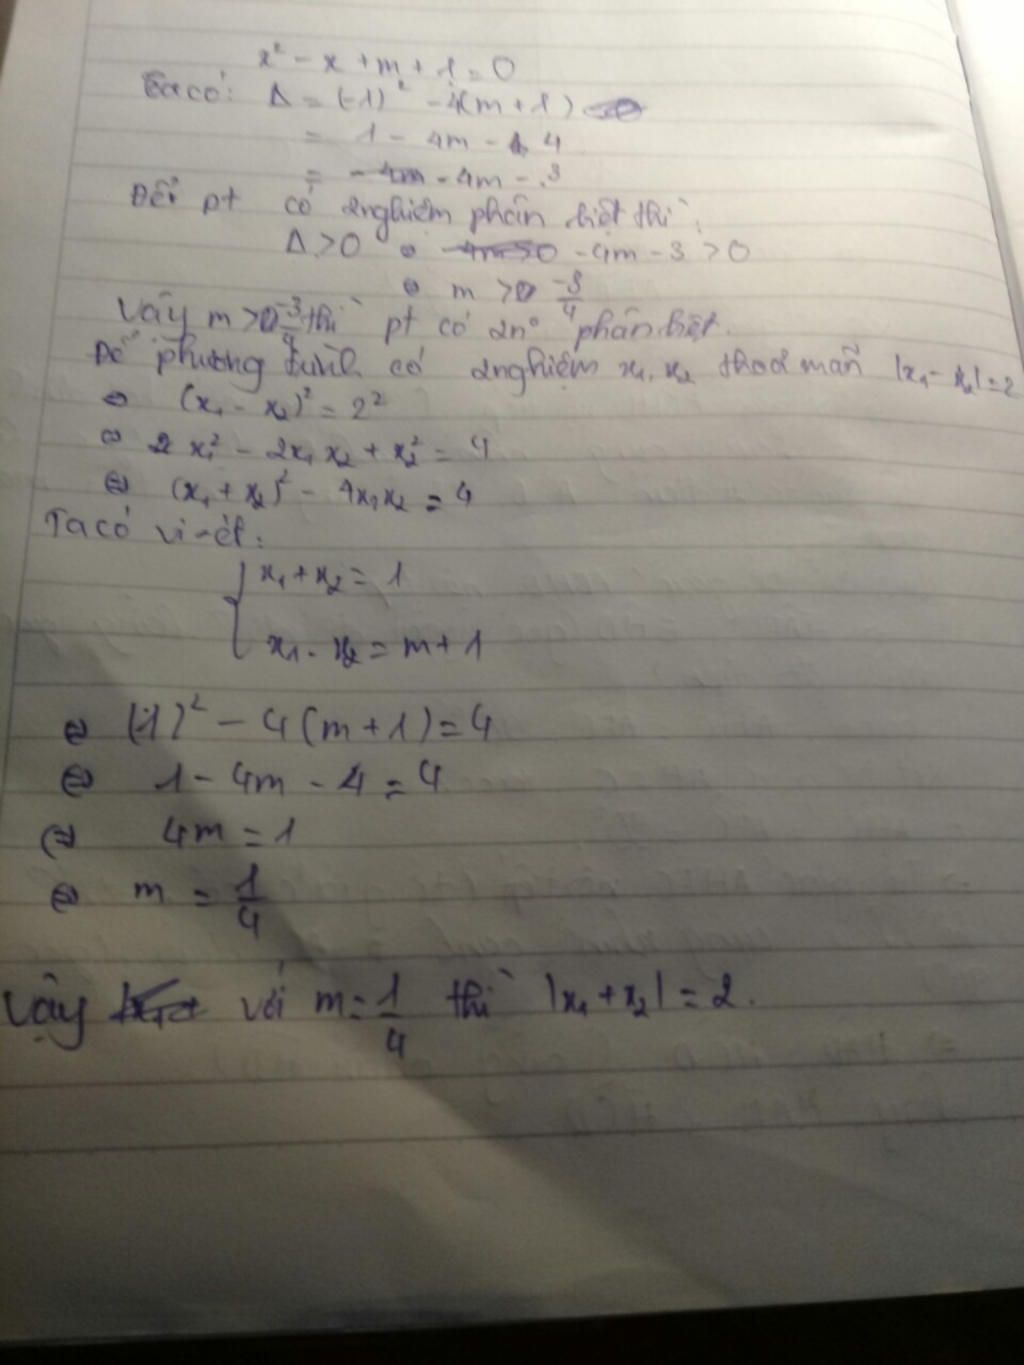 x² - x + m + 1 = 0
Ta có: Δ = (-1)² - 4(m + 1)
= 1 - 4m - 4
= - 4m - 3
Để pt có 2 nghiệm phân biệt thì:
Δ > 0 ⇔ - 4m - 3 > 0
⇔ m > -3/4
Vậy m > -3/4 thì pt có 2n° phân biệt.
Để phương trình có 2 nghiệm x₁, x₂ thoả mãn |x₁ - x₂| = 2
⇔ (x₁ - x₂)² = 2²
⇔ x₁² - 2x₁x₂ + x₂² = 4
⇔ (x₁ + x₂)² - 4x₁x₂ = 4
Ta có vi-ét:
{ x₁ + x₂ = 1
x₁ . x₂ = m + 1
⇔ (-1)² - 4(m + 1) = 4
⇔ 1 - 4m - 4 = 4
⇔ 4m = 1
⇔ m = 1/4
Vậy với m = 1/4 thì |x₁ + x₂| = 2.